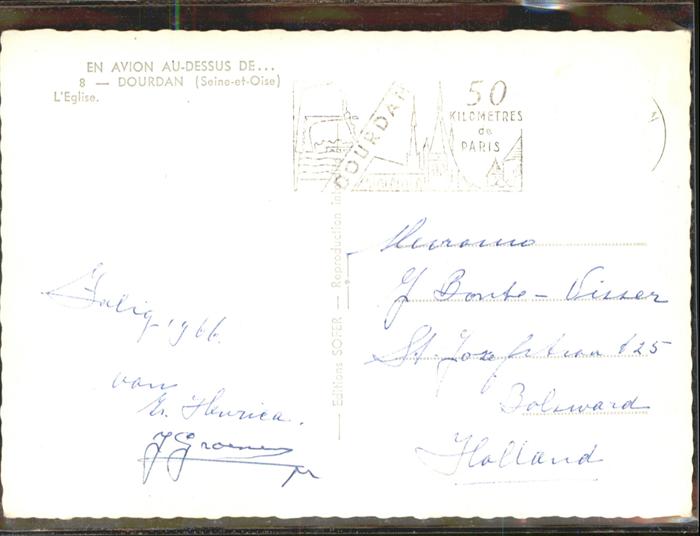 EN AVION AU-DESSUS DE...
8 — DOURDAN (Seine-et-Oise)
L'Eglise.
DOURDAN
50
KILOMETRES
de
PARIS
Editions SOFER — Reproduction
Zalig 1966.
van
Henrica.
J Groenen
Mevrouw
J Bonte - Visser
St. Jozefstraat 125
Bolsward
Holland